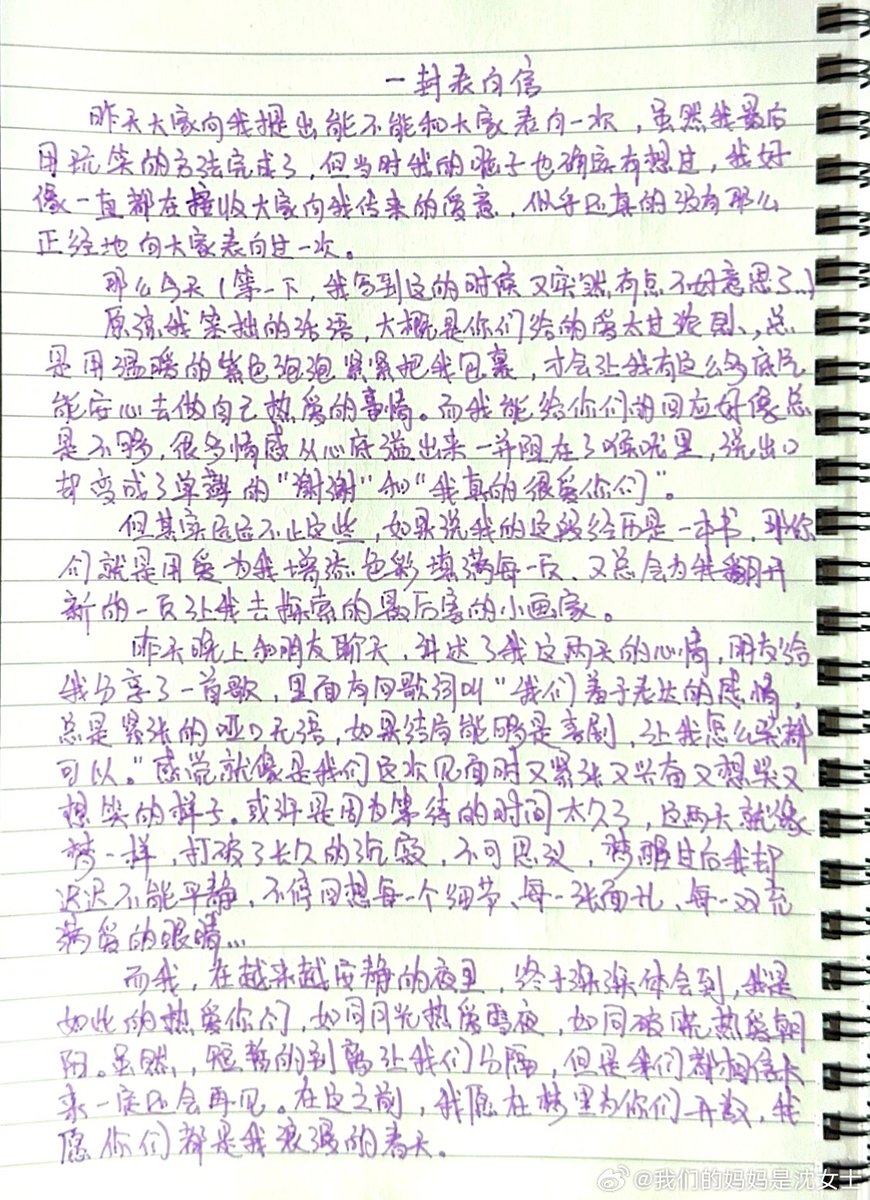 一封表白信
昨天大家向我提出能不能和大家表白一次，虽然我最后
用玩笑的方法完成了，但当时我的脑子也确实有想过，我好
像一直都在接收大家向我传来的爱意，似乎还真的没有那么
正经地向大家表白过一次。
那么今天（等一下，我写到这的时候又突然有点不好意思了..）
原谅我笨拙的话语，大概是你们给的爱太过浓烈，总
是用温暖的紫色泡泡紧紧把我包裹，才会让我有这么多底气
能安心去做自己热爱的事情。而我能给你们的回应好像总
是不够，很多情感从心底溢出来一并阻在了喉咙里，说出口
却变成了单薄的“谢谢”和“我真的很爱你们”。
但其实远远不止这些，如果说我的这段经历是一本书，那你
们就是用爱为我增添色彩填满每一页、又总会为我翻开
新的一页让我去探索的最厉害的小画家。
昨天晚上和朋友聊天，讲述了我这两天的心情，朋友给
我分享了一首歌，里面有句歌词叫“我们羞于表达的感情，
总是紧张的哑口无语，如果结局能够是喜剧，让我怎么哭都
可以。”感觉就像是我们这次见面时又紧张又兴奋又想哭又
想笑的样子。或许是因为等待的时间太久了，这两天就像
梦一样，打破了长久的沉寂，不可思议，梦醒过后我却
迟迟不能平静，不停回想每一个细节、每一张面孔、每一双充
满爱的眼睛...
而我，在越来越安静的夜里，终于渐渐体会到，我是
如此的热爱你们，如同月光热爱雪夜，如同破晓热爱朝
阳。虽然，短暂的别离让我们分隔，但是我们都相信未
来一定还会再见。在这之前，我愿在梦里为你们开数，我
愿你们都是我浪漫的春天。
@我们的妈妈是沈女士